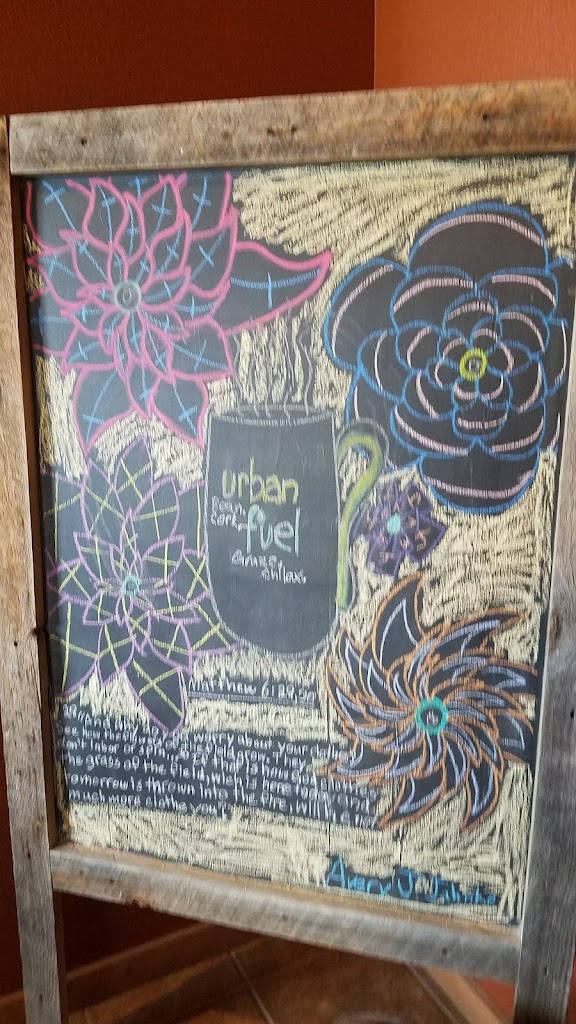 urban
Bean,
Cork, fuel
Graze,
Chilax.
Matthew 6:28-30
worry about your clothes
see how the flowers of the field grow. They
don't labor or spin.
the grass of the field, wich is here today and
tomorrow is thrown into the fire, will he not
much more clothe you
Avery J.